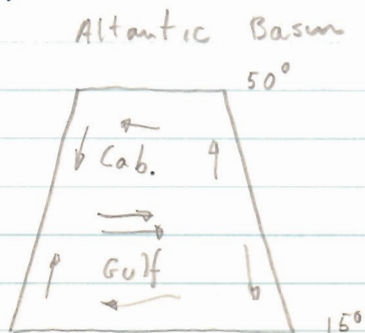 Altantic Basin
50°
Cab.
Gulf
15°